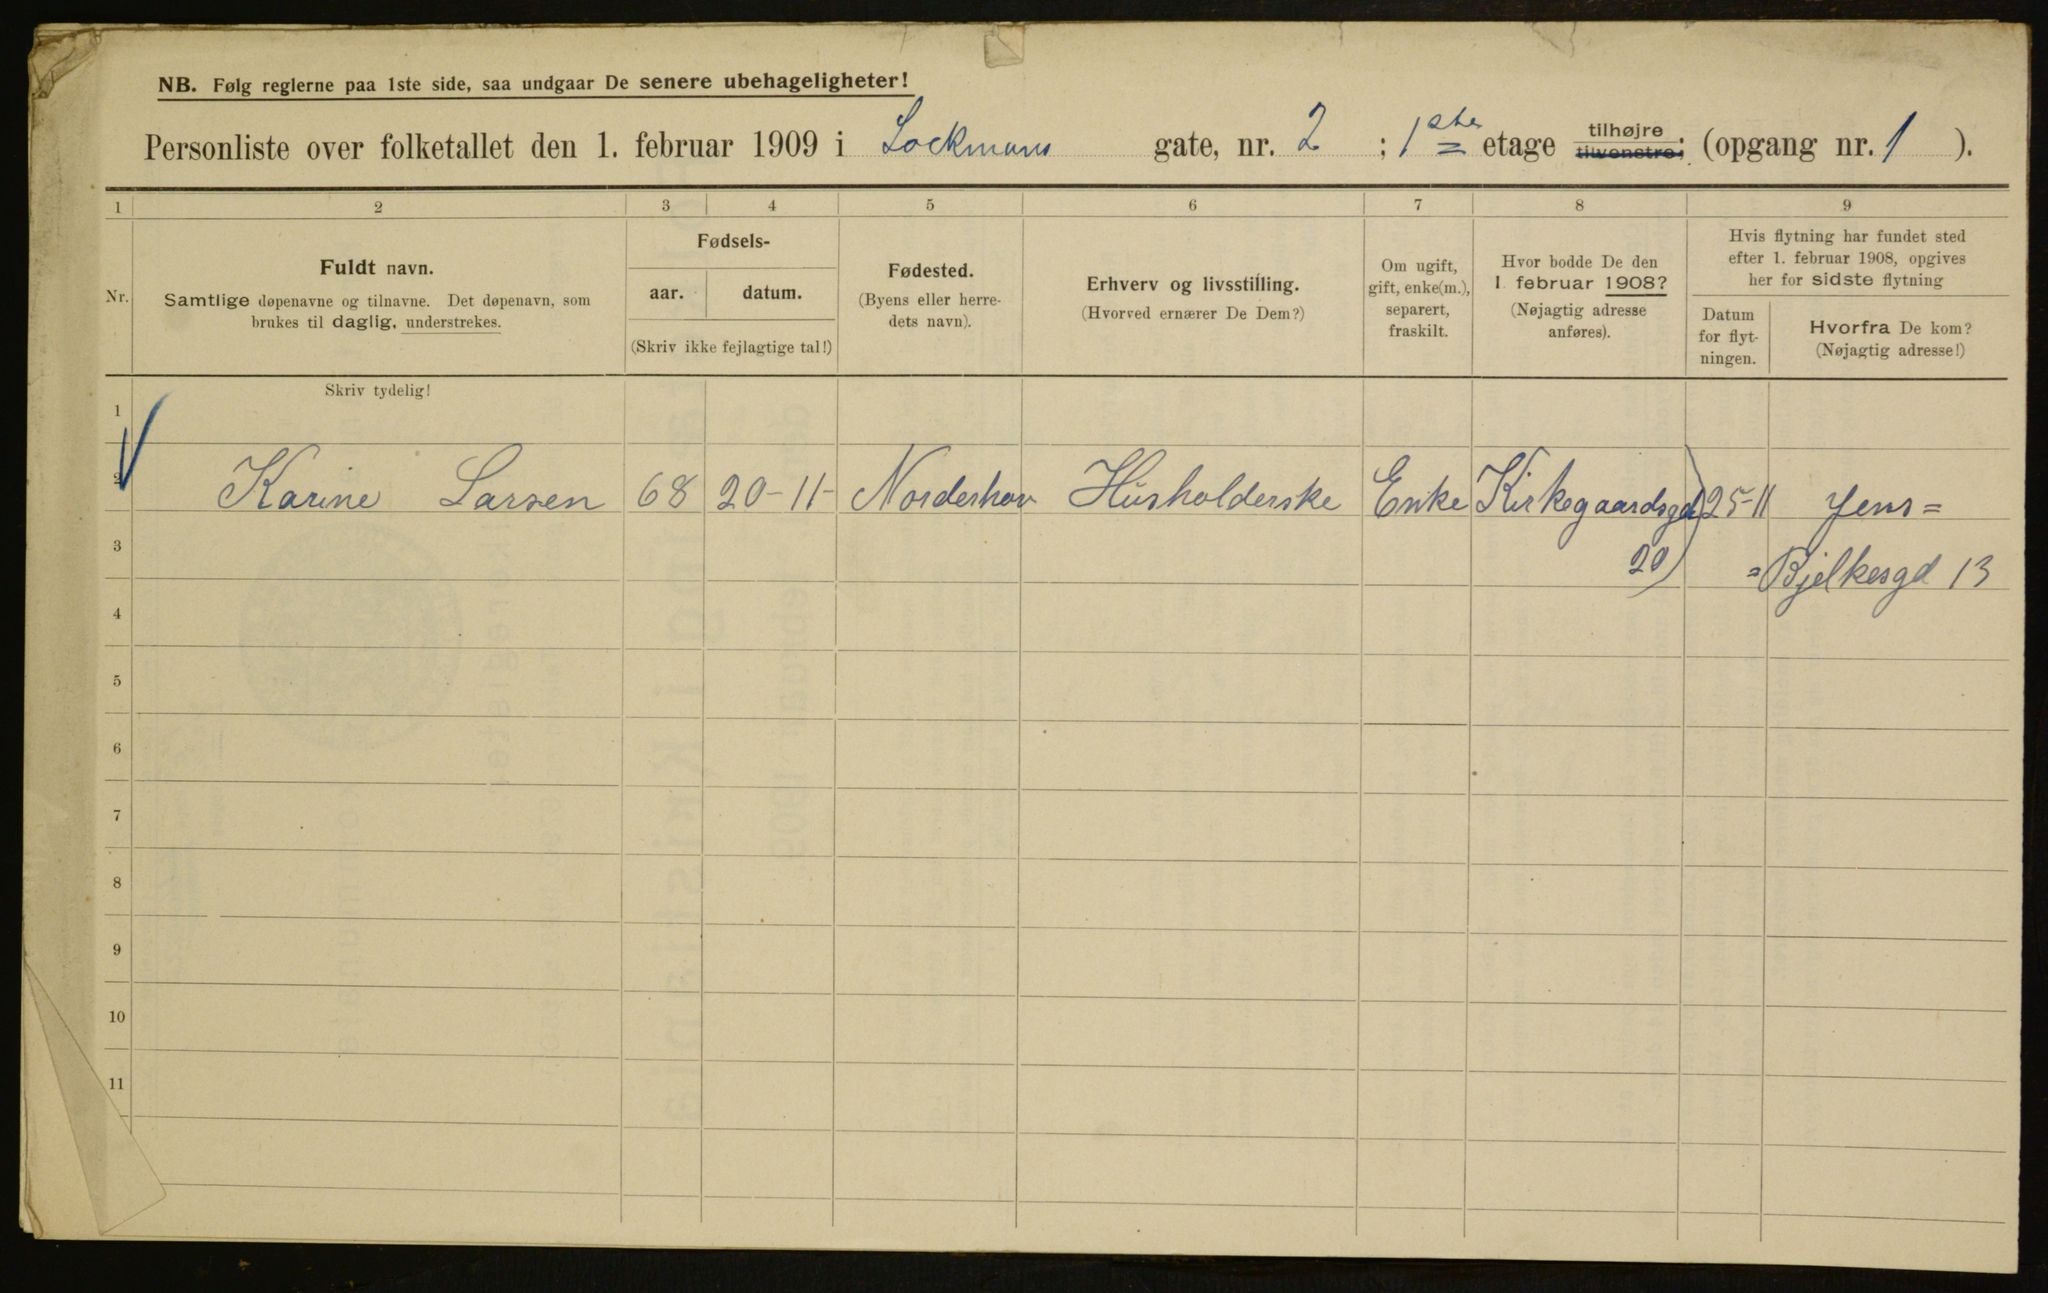 NB. Følg reglerne paa 1ste side, saa undgaar De senere ubehageligheter!
Personliste over folketallet den 1. februar 1909 i Lockmans gate, nr. 2 ; 1ste etage tilhøjre tilvenstre; (opgang nr. 1 ).
1 2 3 4 5 6 7 8 9
Nr.
Fuldt navn.
Samtlige døpenavne og tilnavne. Det døpenavn, som
brukes til daglig, understrekes.
Fødsels-
aar. datum.
(Skriv ikke fejlagtige tal!)
Fødested.
(Byens eller herre-
dets navn).
Erhverv og livsstilling.
(Hvorved ernærer De Dem?)
Om ugift,
gift, enke(m.),
separert,
fraskilt.
Hvor bodde De den
1. februar 1908?
(Nøjagtig adresse
anføres).
Hvis flytning har fundet sted
efter 1. februar 1908, opgives
her for sidste flytning
Datum
for flyt-
ningen.
Hvorfra De kom?
(Nøjagtig adresse!)
Skriv tydelig!
1
2 Karine Larsen 68 20-11- Norderhov Husholderske Enke Kirkegaardsgd 25-11 Jens=
3 20 =Bjelkesgd 13
4
5
6
7
8
9
10
11